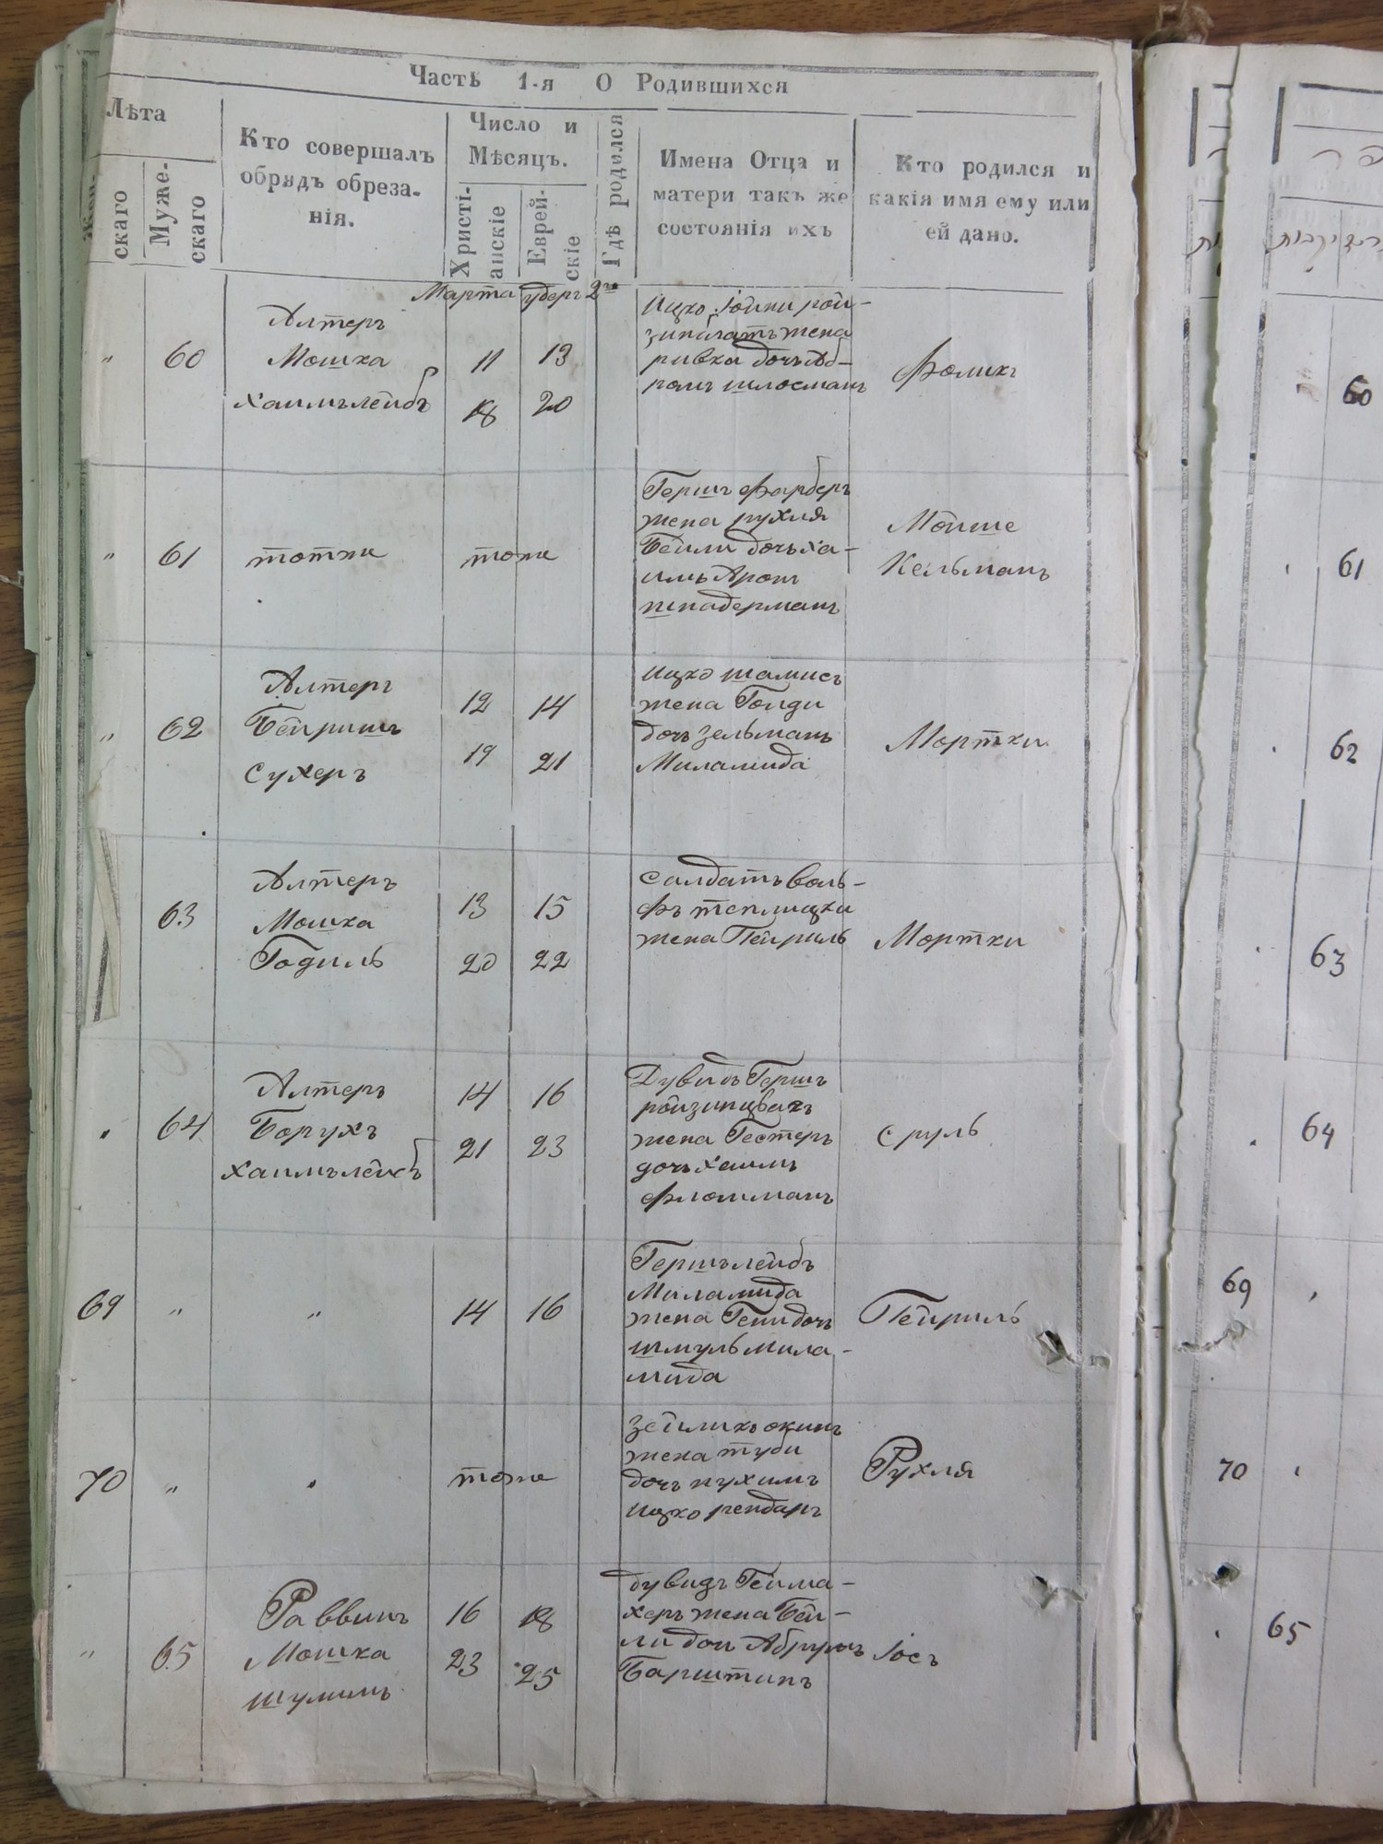 Часть 1-я О Родившихся
Лѣта
Женскаго
Мужескаго
Кто совершалъ
обрядъ обреза-
нія.
Число и
Мѣсяцъ.
Христі-
анскіе
Еврей-
скіе
Гдѣ родился
Имена Отца и
матери такъ же
состоянія ихъ
Кто родился и
какія имя ему или
ей дано.
Марта
"
60
Алтеръ
Мошка
Хаимълейбъ
11 13
18 20
Ицко
жена
ривка дочь Аб-
рамъ шлосманъ
Фоликъ
"
61
тотже
тоже
Гершъ Фарберъ
жена рухля
Бейли дочь ха-
имъ Аронъ
шнадерманъ
Мойше
Кельманъ
"
62
Алтеръ
Бейришъ
Сухеръ
12 14
19 21
Ицко шамисъ
жена Голди
дочь Зельманъ
Миламида
Мортки
63
Алтеръ
Мошка
Годиль
13 15
20 22
Салдатъ Воль-
фъ теплицки
жена Пейриль
Мортки
64
Алтеръ
Борухъ
Хаимълейбъ
14 16
21 23
Дувидъ Гершъ
ройзинцвагъ
жена Гестеръ
дочь Хаимъ
Сруль
69
"
"
14 16
Гершълейбъ
Миламида
жена Гени дочь
шмуль мила-
мида
Пейриль
70
"
тоже
Зейликъ окинъ
жена туби
дочь нухимъ
Ицко рендаръ
Рухля
"
65
Раввинъ
Мошка
шулимъ
16 18
23 25
дувидъ Гейма-
херъ жена Бей-
ли дочь Абрумъ
Барштинъ
Іосъ
60
61
62
63
64
69
70
65